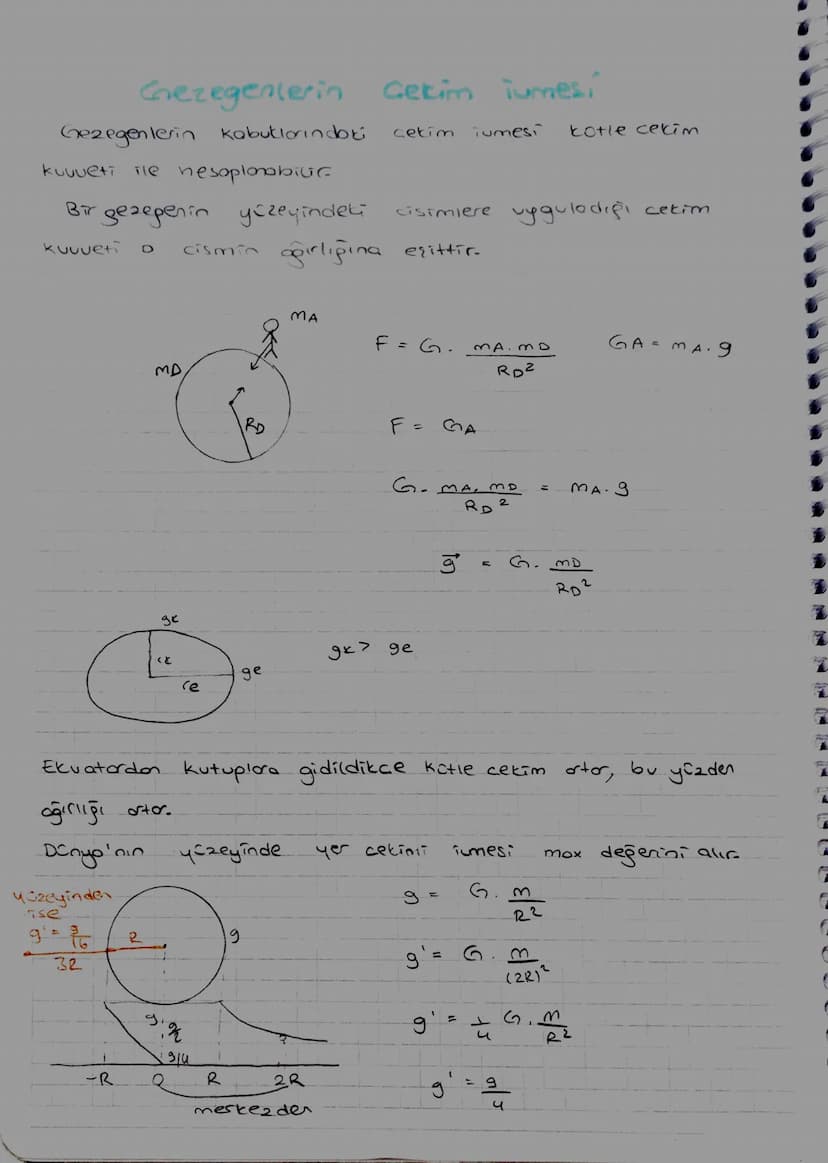 Gezegenlerin Çekim ivmesi
Gezegenlerin kabuklarındaki cekim ivmesi kütle cekim
kuvveti ile hesaplanabilir.
Bir gezegenin yüzeyindeki cisimlere uyguladığı cekim
kuvveti o cismin ağırlığına eşittir.
mA
mD
RD
F = G. mA.mD / RD²
GA = mA.g
F = GA
G. mA.mD / RD² = mA.g
g⃗ = G. mD / RD²
gk
rk
re
ge
gk > ge
Ekvatordan kutuplara gidildikce kütle cekim artar, bu yüzden
ağırlığı artar.
Dünya'nın yüzeyinde yer cekimi ivmesi max değerini alır.
yüzeyinden
ise
g' = g/16
R
3R
g
g = G. m / R²
g' = G. m / (2R)²
g' = 1/4 G. m / R²
g' = g/4
g
g/4
-R 0 R 2R
merkezden